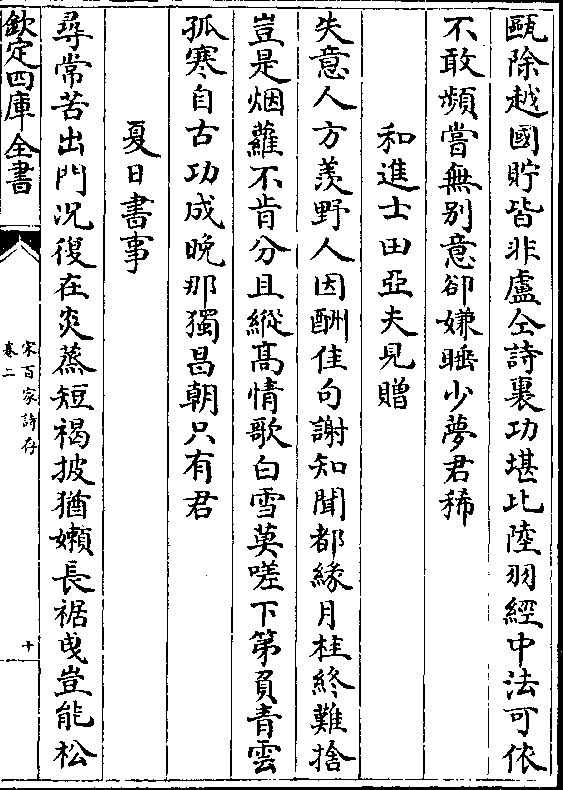 甌除越國貯皆非盧仝詩裏功堪比陸羽經中法可依
不敢頻嘗無别意卻嫌睡少夢君稀
和進士田亞夫見贈
失意人方羨野人因酬佳句謝知聞都緣月桂終難捨
豈是烟蘿不肯分且縱髙情歌白雪莫嗟下第負青雲
孤寒自古功成晚那獨昌朝只有君
夏日書事
尋常苦出門况復在炎蒸短褐披猶嬾長裾曳豈能松
欽定四庫全書
宋百家詩存
卷二
十